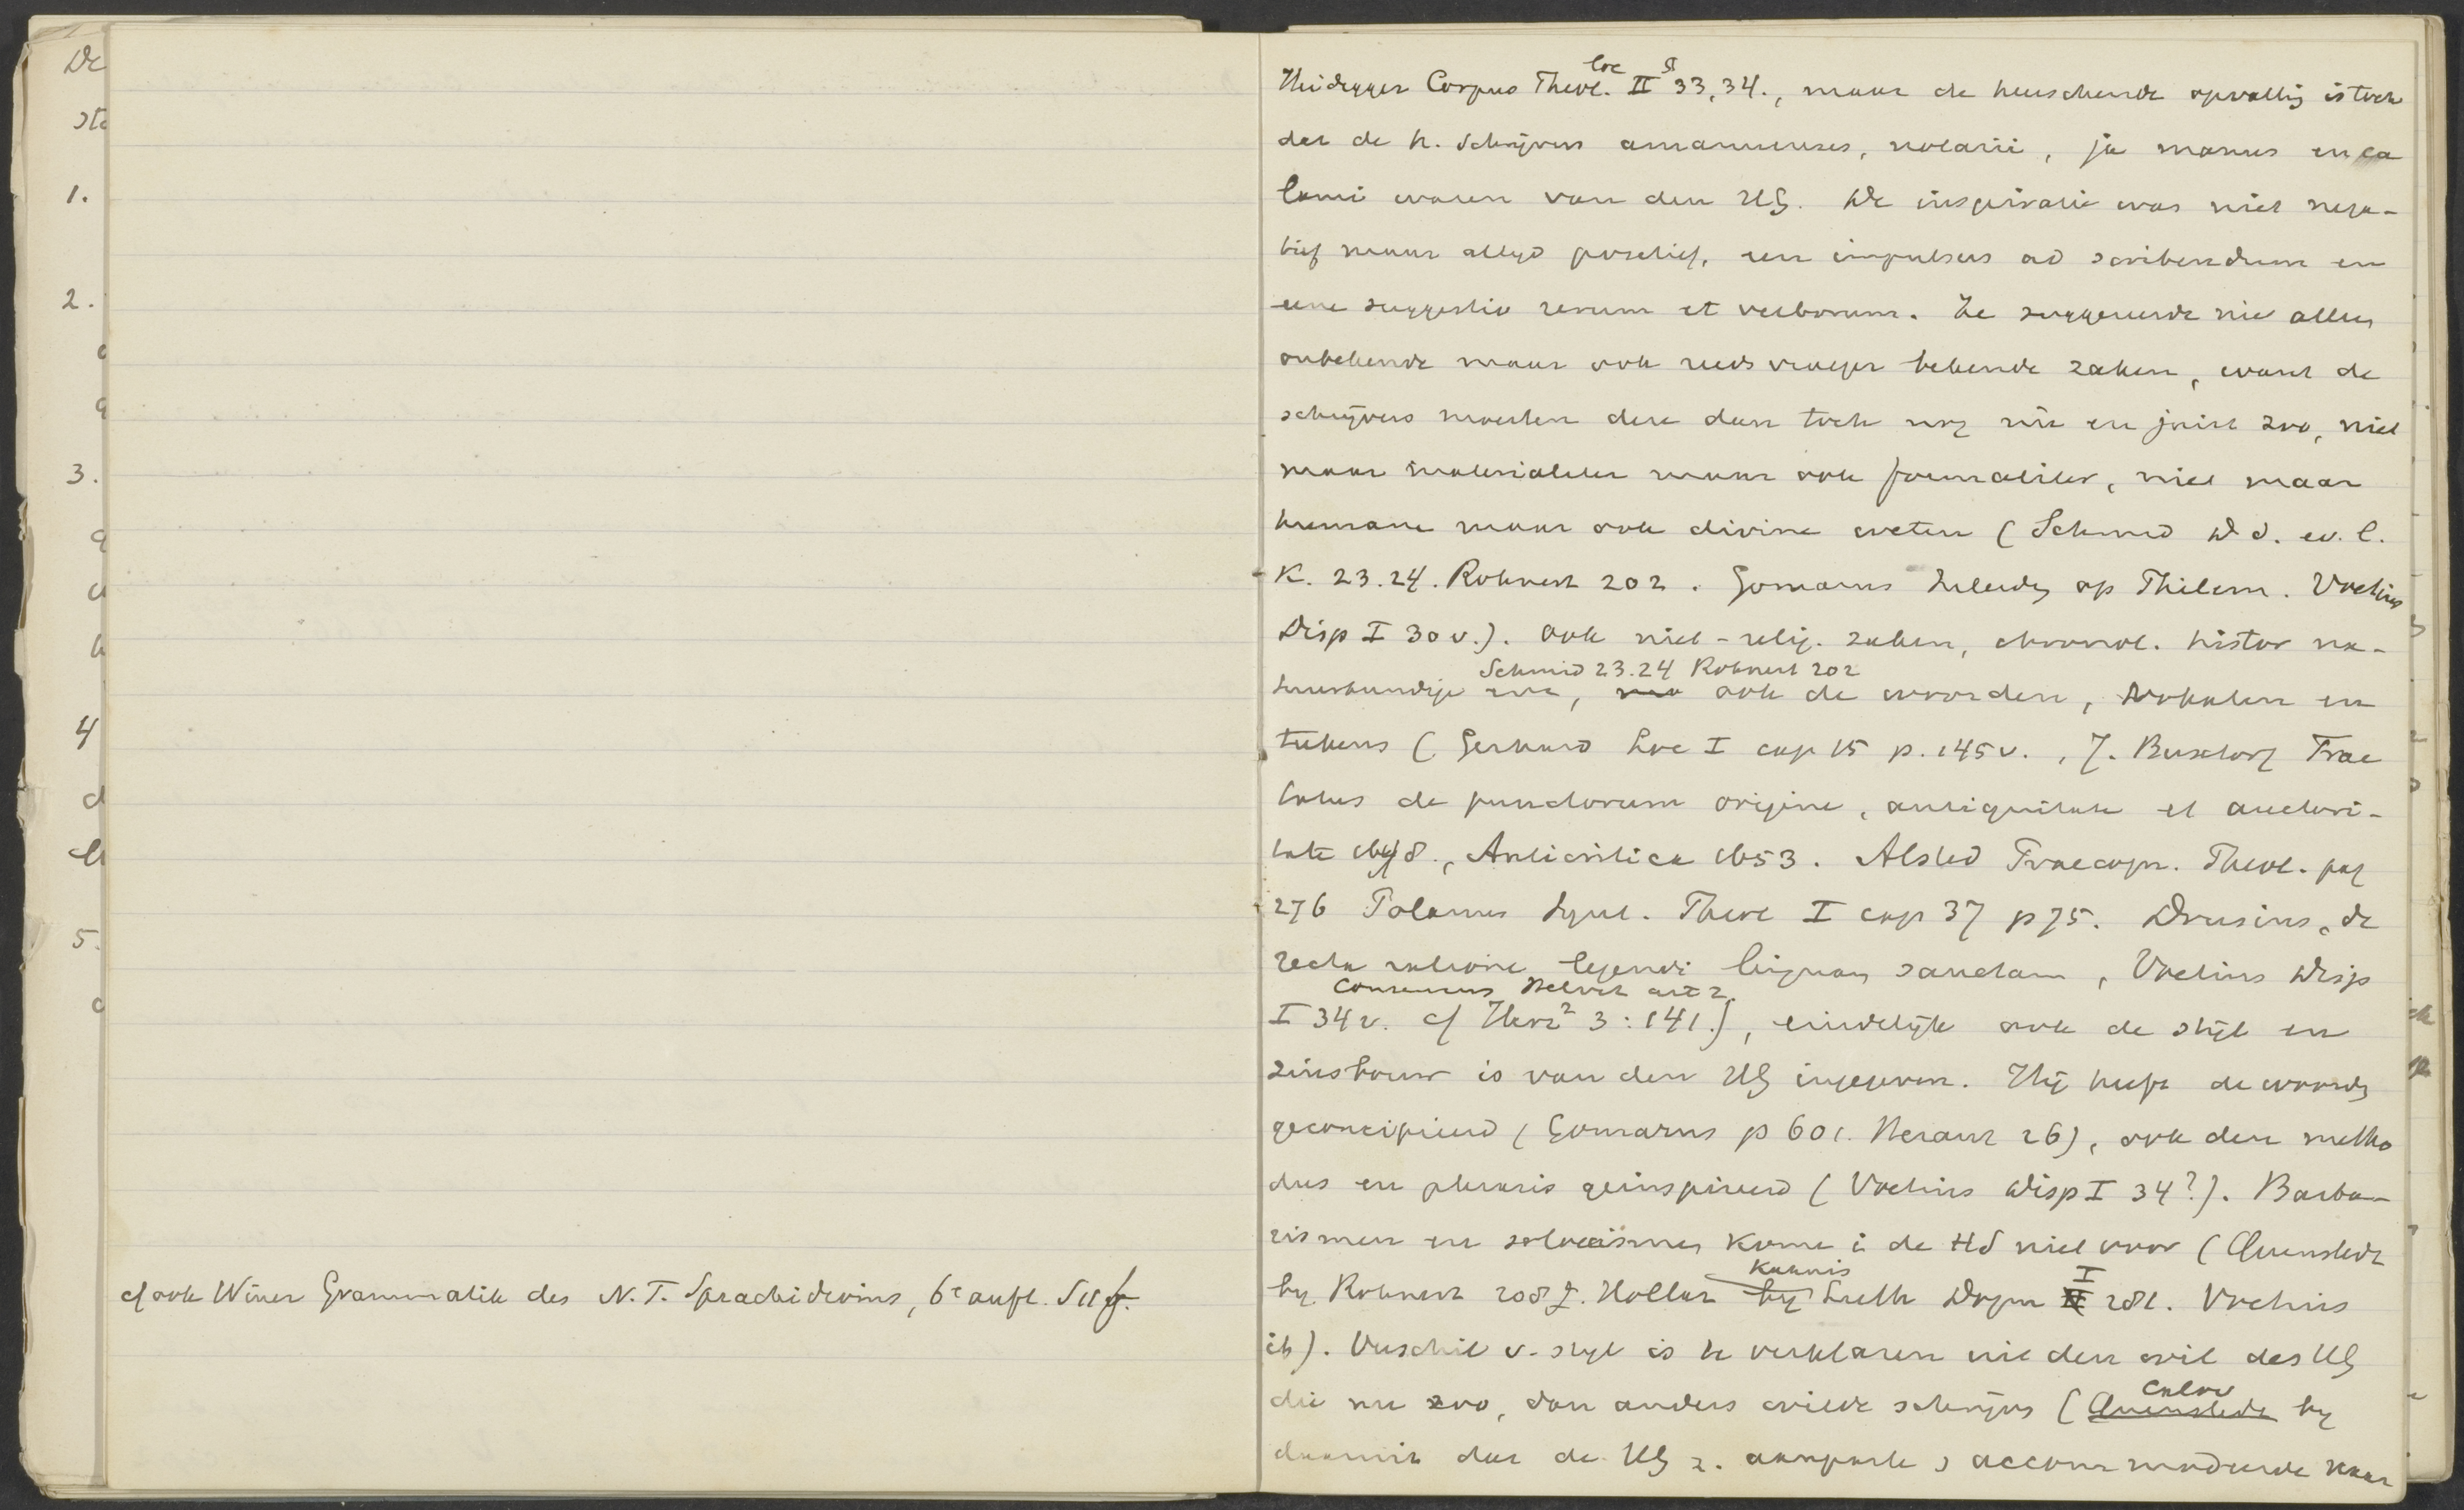 cf ook Winer Grammatik des N.T. Sprachidioms, 6e aufl. S 11 f.
Heidegger Corpus Theol. loc II § 33, 34., maar de heerschende opvatting is toch
dat de h. schrijvers amanuenses, notarii, ja manus en ca
lami waren van den HG. De inspiratie was niet nega-
tief maar altyd positief, een impulsus ad scribendum en
eene suggestio rerum et verborum. Ze suggereerde niet alleen
onbekende maar ook reeds vroeger bekende zaken, want de
schrijvers moesten deze dan toch nog nu en juist zoo, niet
maar materialiter maar ook formaliter, niet maar
humane maar ook divine weten (Schmid D d. ev. l.
K. 23.24. Rohnert 202. Gomarus Inleidg op Philem. Voetius
Disp I 30 v.). ook niet-relig. zaken, chronol. histor na-
Schmid 23.24 Rohnert 202
tuurkundige enz, ook de woorden, vokalen en
teekens (Gerhard Loc I cap 15 p. 145 v., J. Buxtorf Trac
tatus de punctorum origine, antiquitate et auctori-
tate 1648., Anticritica 1653. Alsted Praecogn. Theol. pag
276 Polanus Synt. Theol I cap 37 p 75. Drusius, de
recta ratione legendi linguam sanctam, Voetius Disp
Consensus Helvet art 2.
I 34 v. cf Herz² 3:141.), eindelijk ook de stijl en
zinsbouw is van den HG ingegeven. Hij heeft de woorden
geconcipieerd (Gomarus p 601. Heraut 26), ook den metho
dus en phrasis geinspireerd (Voetius Disp I 34?). Barba-
rismen en soloecismen komen i de HS niet voor (Quenstedt
by Rohnert 208. Hollaz by Kahnis Luth Dogm I 281. Voetius
ib). Verschil v. styl is te verklaren uit den wil des HG
die nu zoo, dan anders wilde schrijven (Quenstedt Calov by
daaruit dat de HG z. aanpaste, accommodeerde naar